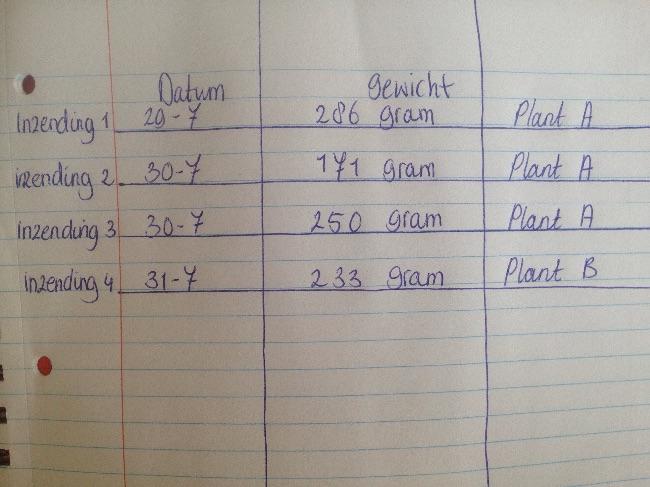 Datum gewicht
Inzending 1 29-7 286 gram Plant A
inzending 2 30-7 171 gram Plant A
inzending 3 30-7 250 gram Plant A
inzending 4 31-7 233 gram Plant B